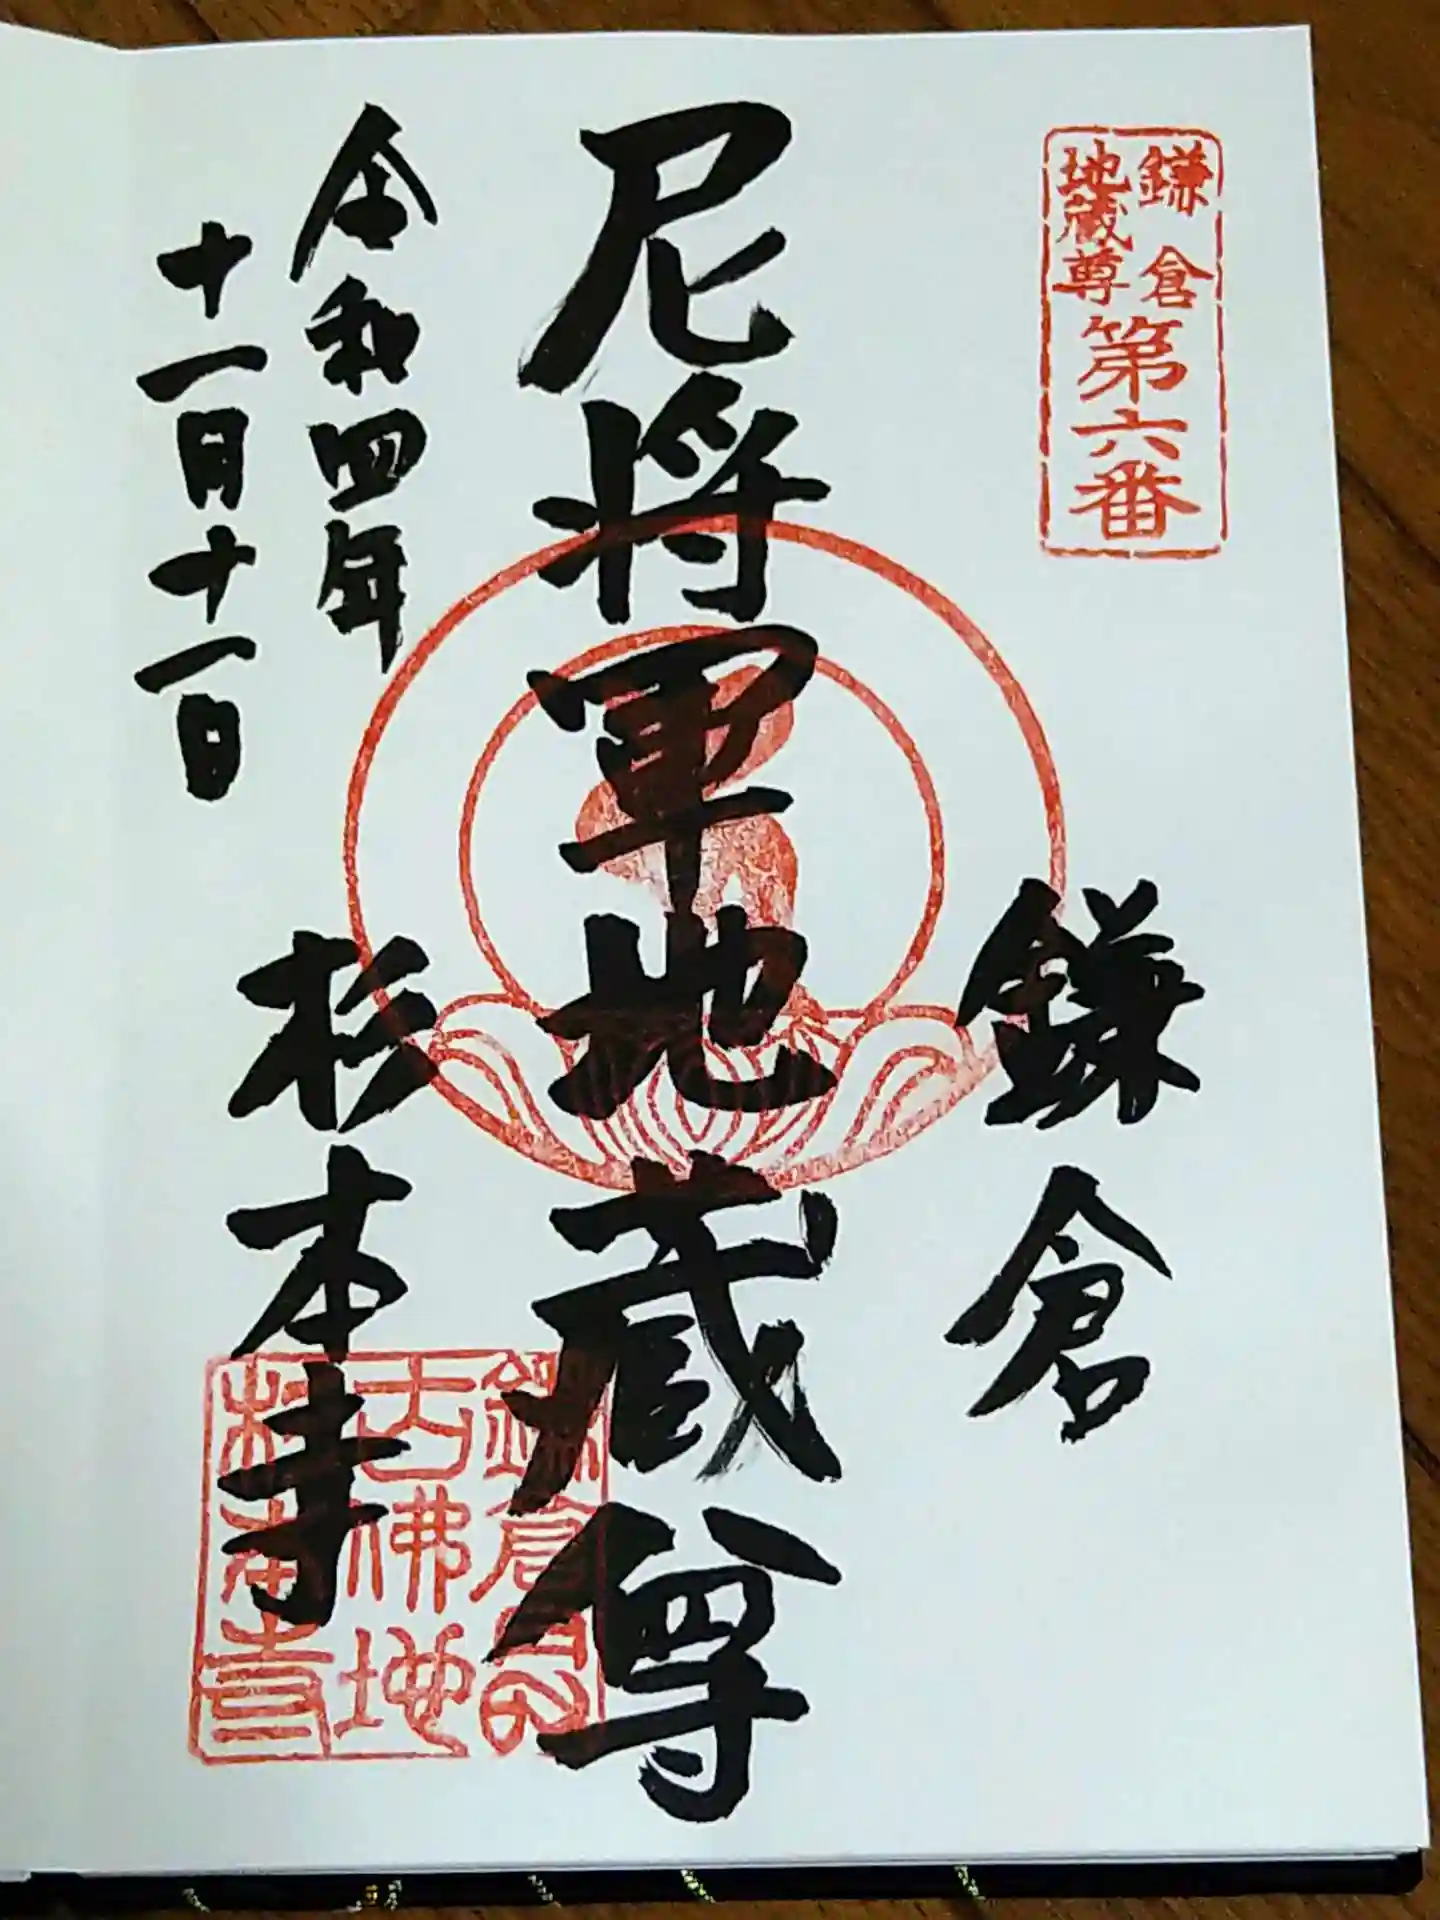 鎌倉
地蔵尊
第六番
鎌倉
尼将軍地蔵尊
令和四年
十一月十一日
杉本寺
古佛地